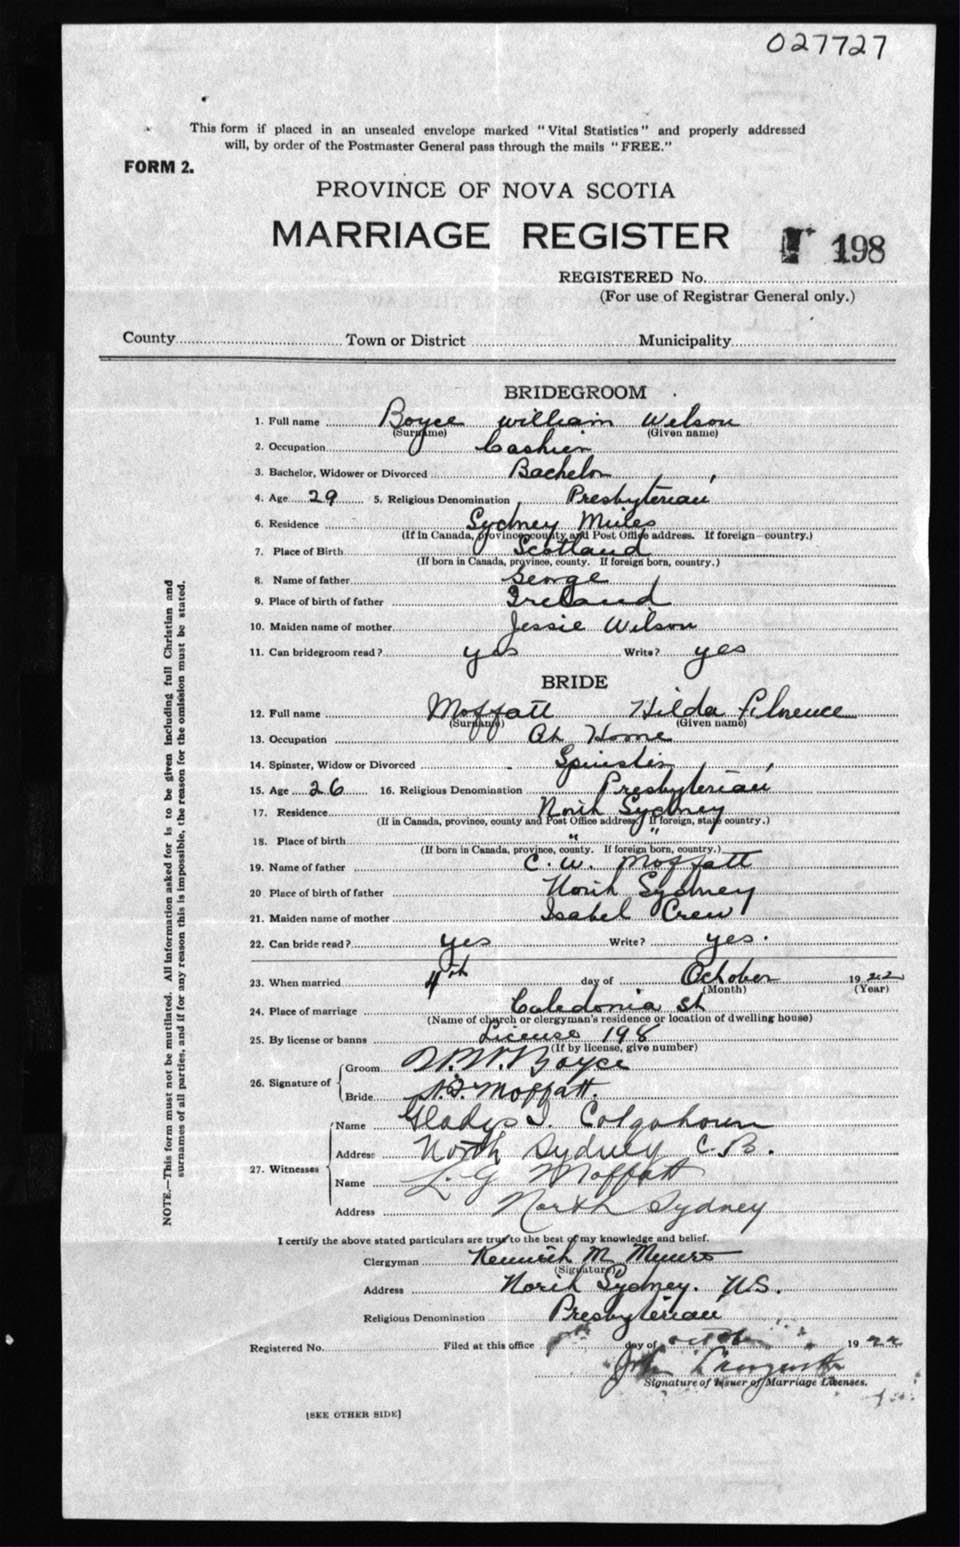 027727
This form if placed in an unsealed envelope marked "Vital Statistics" and properly addressed
will, by order of the Postmaster General pass through the mails "FREE."
FORM 2.
PROVINCE OF NOVA SCOTIA
MARRIAGE REGISTER
198
REGISTERED No.
(For use of Registrar General only.)
County Town or District Municipality
BRIDEGROOM
1. Full name Boyce William Wilson
(Surname) (Given name)
2. Occupation Cashier
3. Bachelor, Widower or Divorced Bachelor
4. Age 29 5. Religious Denomination Presbyterian
6. Residence Sydney Mines
(If in Canada, province, county and Post Office address. If foreign—country.)
7. Place of Birth Scotland
(If born in Canada, province, county. If foreign born, country.)
8. Name of father George
9. Place of birth of father Ireland
10. Maiden name of mother Jessie Wilson
11. Can bridegroom read? yes Write? yes
BRIDE
12. Full name Moffatt Hilda Florence
(Surname) (Given name)
13. Occupation At Home
14. Spinster, Widow or Divorced Spinster
15. Age 26 16. Religious Denomination Presbyterian
17. Residence North Sydney
(If in Canada, province, county and Post Office address. If foreign, state country.)
18. Place of birth " "
(If born in Canada, province, county. If foreign born, country.)
19. Name of father C. W. Moffatt
20 Place of birth of father North Sydney
21. Maiden name of mother Isabel Crew
22. Can bride read? yes Write? yes.
23. When married 4th day of October 1922
(Month) (Year)
24. Place of marriage Caledonia St
(Name of church or clergyman's residence or location of dwelling house)
25. By license or banns License 198
(If by license, give number)
26. Signature of Groom W. W. Boyce
Bride H. F. Moffatt.
27. Witnesses Name Gladys I. Colquhoun
Address North Sydney C. B.
Name L. G Moffatt
Address North Sydney
I certify the above stated particulars are true to the best of my knowledge and belief.
Clergyman Kenneth M Munro
(Signature)
Address North Sydney. N.S.
Religious Denomination Presbyterian
Registered No. Filed at this office day of 1922
John
Signature of Issuer of Marriage Licenses.
[SEE OTHER SIDE]
NOTE.—This form must not be mutilated. All information asked for is to be given including full Christian and
surnames of all parties, and if for any reason this is impossible, the reason for the omission must be stated.